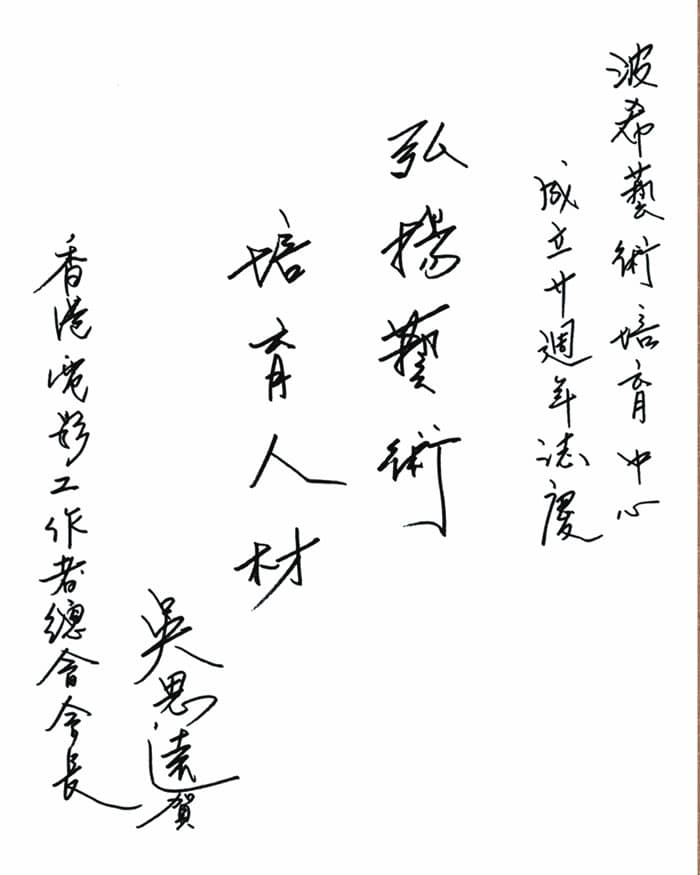 波希藝術培育中心
成立廿週年誌慶
弘揚藝術
培育人材
吳思遠賀
香港電影工作者總會會長